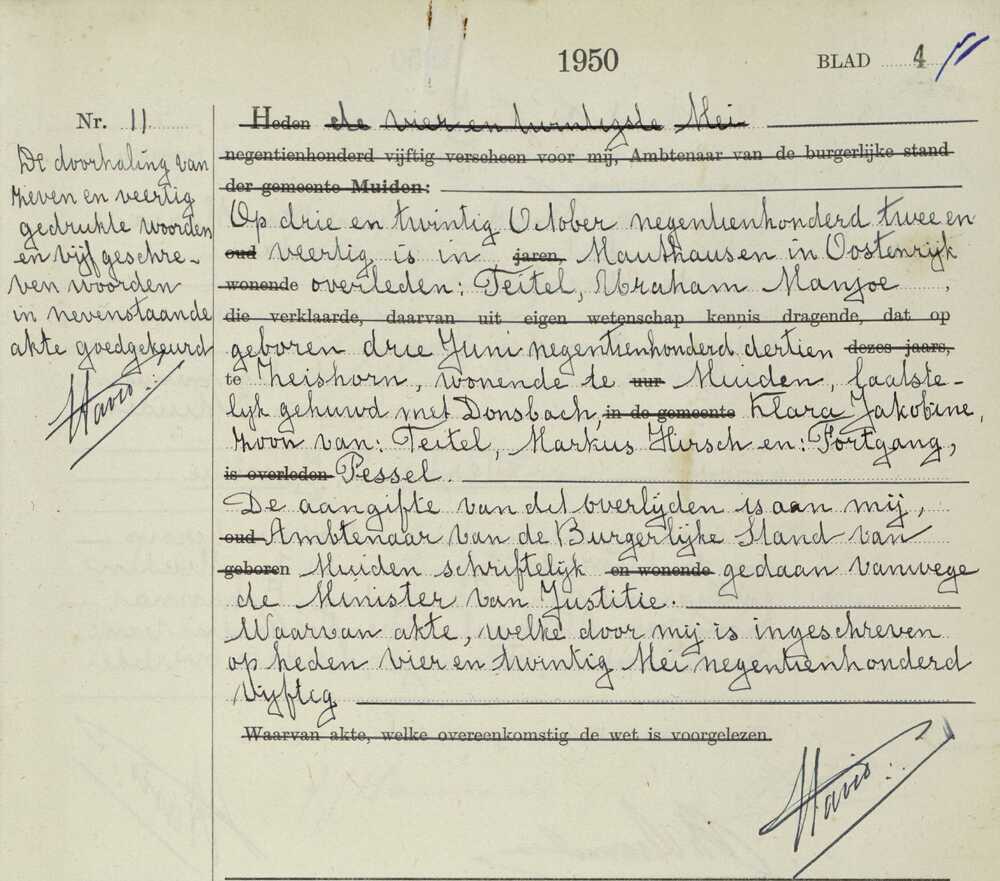 1950
BLAD 4
Nr. 11
De doorhaling van
zeven en veertig
gedrukte woorden
en vijf geschre-
ven woorden
in nevenstaande
akte goedgekeurd
Heden de vier en twintigste Mei
negentienhonderd vijftig verscheen voor mij, Ambtenaar van de burgerlijke stand
der gemeente Muiden:
Op drie en twintig October negentienhonderd twee en
oud veertig is in jaren, Mauthausen in Oostenrijk
wonende overleden: Teitel, Abraham Manjoe,
die verklaarde, daarvan uit eigen wetenschap kennis dragende, dat op
geboren drie Juni negentienhonderd dertien dezes jaars,
te Zeishorn, wonende te uur Muiden, laatste-
lijk gehuwd met Donsbach, in de gemeente Klara Jakobine,
zoon van: Teitel, Markus Hirsch en: Fortgang,
is overleden Pessel.
De aangifte van dit overlijden is aan mij,
oud Ambtenaar van de Burgerlijke Stand van
geboren Muiden schriftelijk en wonende gedaan vanwege
de Minister van Justitie.
Waarvan akte, welke door mij is ingeschreven
op heden vier en twintig Mei negentienhonderd
vijftig
Waarvan akte, welke overeenkomstig de wet is voorgelezen.